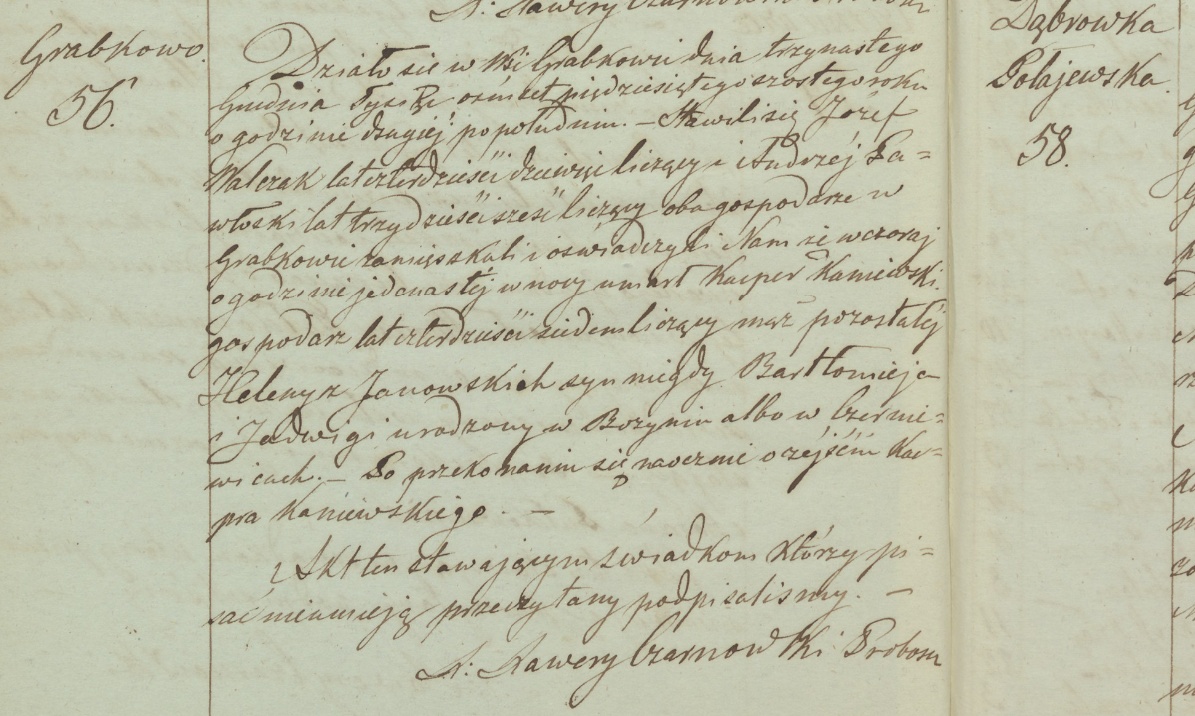 Grabkowo.
56.
Działo się w Wsi Grabkowie dnia trzynastego
Grudnia Tysiąc ośmset pięćdziesiątego szóstego roku
o godzinie drugiéj po południu. — Stawili się Józef
Walczak lat czterdzieści dziewięć liczący i Andrzéj Pa=
włoski lat trzydzieści sześć liczący oba gospodarze w
Grabkowie zamięszkali i oświadczyli Nam że wczoraj
o godzinie jedenastéj w nocy umarł Kacper Kaniewski
gospodarz lat czterdzieści siedem liczący mąż pozostałéj
Heleny z Janowskich syn niegdy Bartłomieja
i Jadwigi urodzony w albo w Czernie=
wicach. — Po przekonaniu się naocznie o zéjściu Kac=
pra Kaniewskiego. —
Akt ten stawającym świadkom którzy pi=
sać nieumieją przeczytany podpisaliśmy. —
X: Xawery Czarnowski Proboszcz
Dąbrowka
Połajewska.
58.